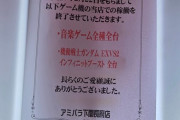 以下ゲーム機の当店での稼働を
終了させていただきます。
・音楽ゲーム全種全台
・機動戦士ガンダム EXVS2
インフィニットブースト 全台
長らくのご愛顧誠に
ありがとうございました。
アミパラ下関長府店